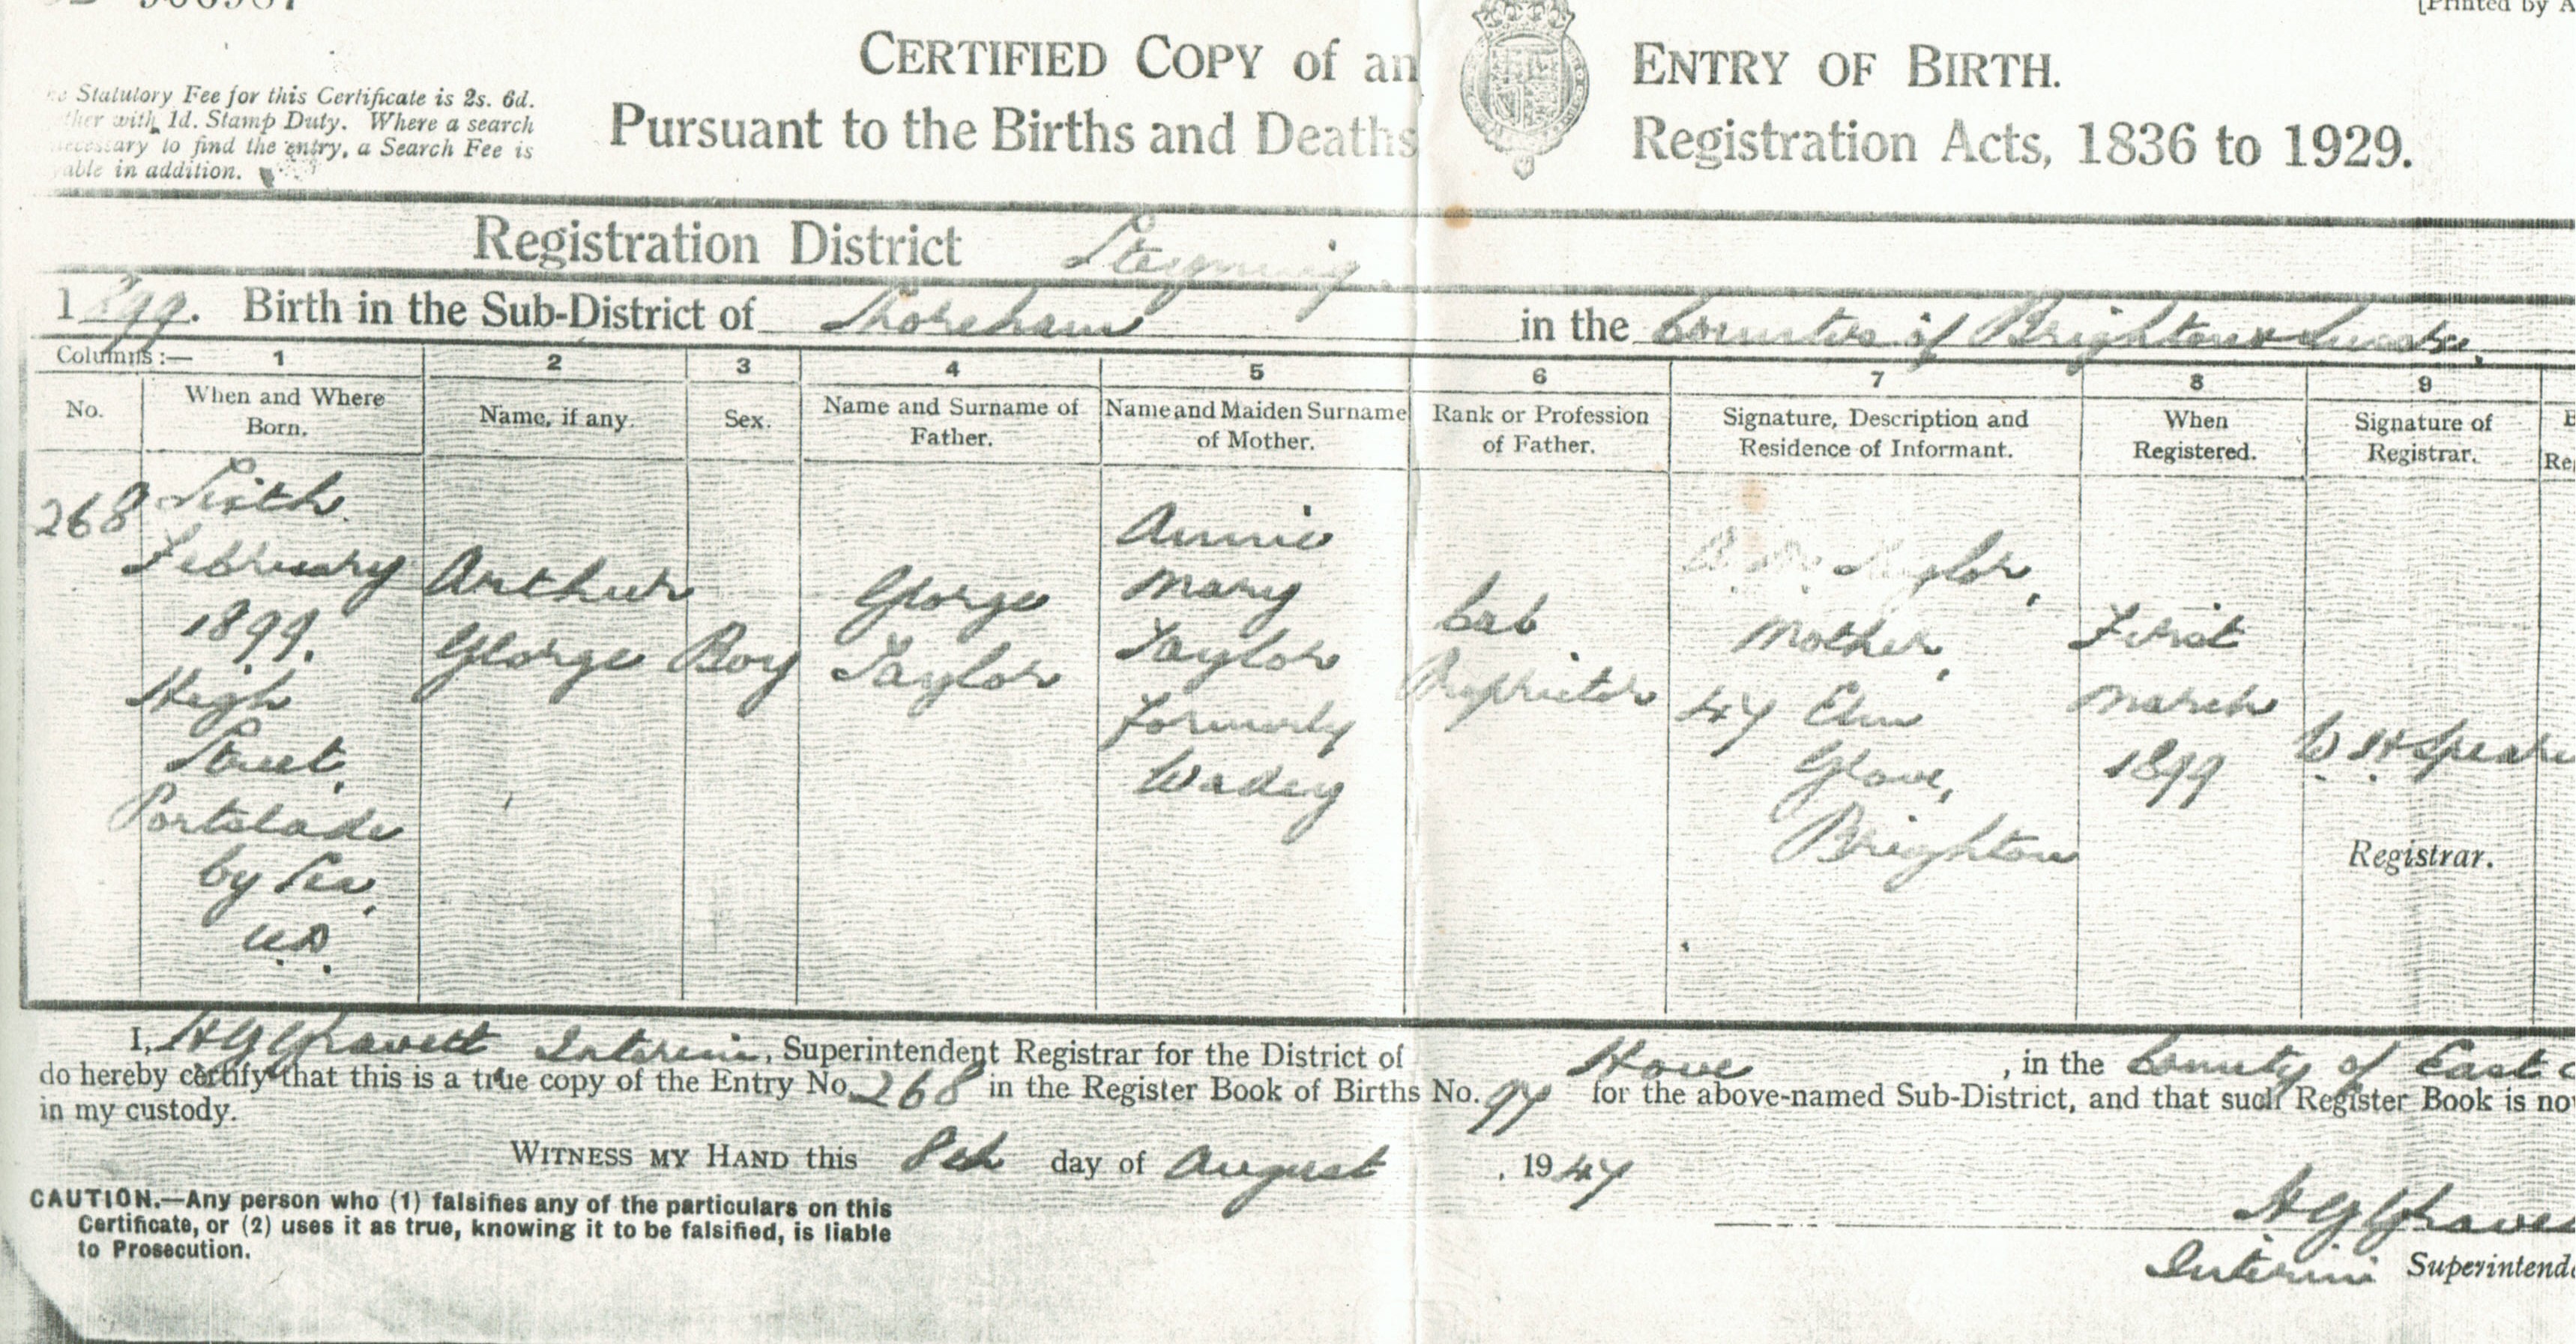 CERTIFIED COPY of an ENTRY OF BIRTH.
[Printed by A
Statutory Fee for this Certificate is 2s. 6d.
with 1d. Stamp Duty. Where a search
necessary to find the entry, a Search Fee is
in addition.
Pursuant to the Births and Deaths Registration Acts, 1836 to 1929.
Registration District Steyning.
1899. Birth in the Sub-District of Shoreham in the Counties of Brighton &
Columns :— 1 2 3 4 5 6 7 8 9
No.
When and Where
Born.
Name, if any.
Sex.
Name and Surname of
Father.
Name and Maiden Surname
of Mother.
Rank or Profession
of Father.
Signature, Description and
Residence of Informant.
When
Registered.
Signature of
Registrar.
268
Sixth
February
1899.
High
Street.
Portslade
by Sea.
U.D.
Arthur
George
Boy
George
Taylor
Annie
Mary
Taylor
Formerly
Wadey
Cab
Proprietor
A. M. Taylor,
Mother,
47 Elm
Grove,
Brighton
First
March
1899
W H Speare
Registrar.
I, H G Gravett Interim, Superintendent Registrar for the District of Hove , in the County of East
do hereby certify that this is a true copy of the Entry No. 268 in the Register Book of Births No. 97 for the above-named Sub-District, and that such Register Book is now
in my custody.
WITNESS MY HAND this 8th day of August , 1947
CAUTION.—Any person who (1) falsifies any of the particulars on this
Certificate, or (2) uses it as true, knowing it to be falsified, is liable
to Prosecution.
H G Grave
Interim Superintend